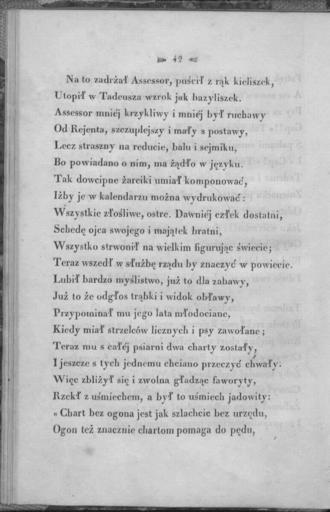 42
Na to zadrżał Assessor, puścił z rąk kieliszek,
Utopił w Tadeusza wzrok jak bazyliszek.
Assessor mniéj krzykliwy i mniéj był ruchawy
Od Rejenta, szczuplejszy i mały s postawy,
Lecz straszny na reducie, balu i sejmiku,
Bo powiadano o nim, ma żądło w języku.
Tak dowcipne żarciki umiał komponować,
Iżby je w kalendarzu można wydrukować:
Wszystkie złośliwe, ostre. Dawniéj człek dostatni,
Schedę ojca swojego i majątek bratni,
Wszystko strwonił na wielkim figurując świecie;
Teraz wszedł w służbę rządu by znaczyć w powiecie.
Lubił bardzo myślistwo, już to dla zabawy,
Już to że odgłos trąbki i widok obławy,
Przypominał mu jego lata młodociane,
Kiedy miał strzelców licznych i psy zawołane;
Teraz mu s całéj psiarni dwa charty zostały,
I jeszcze s tych jednemu chciano przeczyć chwały.
Więc zbliżył się i zwolna gładząc faworyty,
Rzekł z uśmiechem, a był to uśmiech jadowity:
« Chart bez ogona jest jak szlachcic bez urzędu,
Ogon téż znacznie chartom pomaga do pędu,